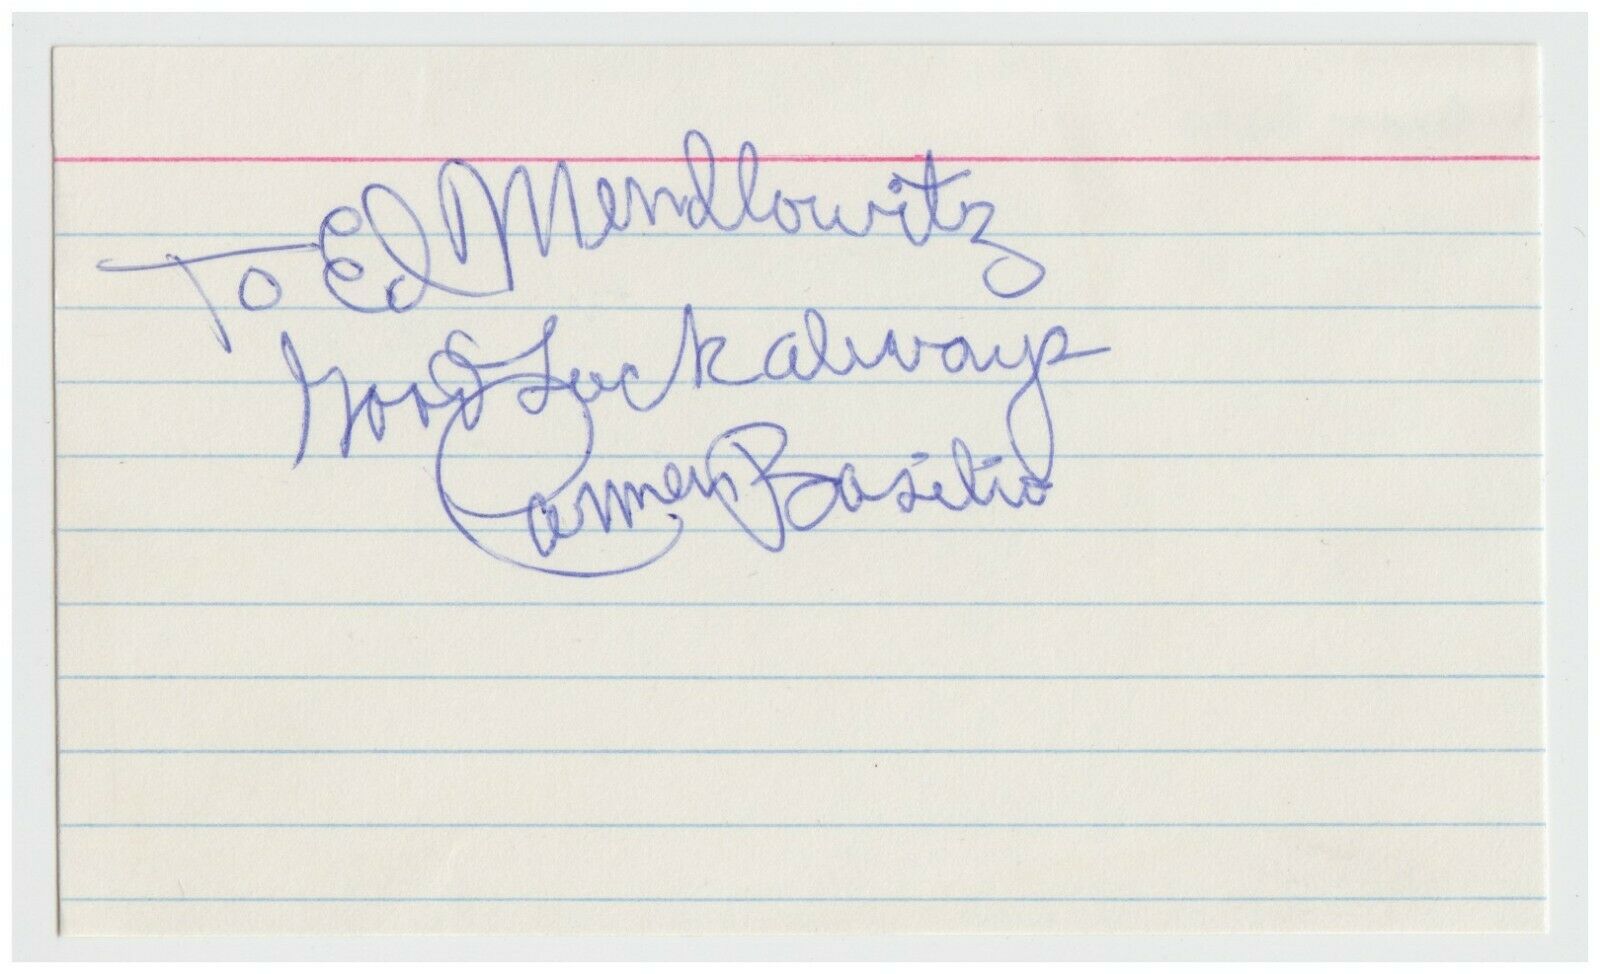 To Ed Mendlowitz
Good Luck always
Carmen Basilio